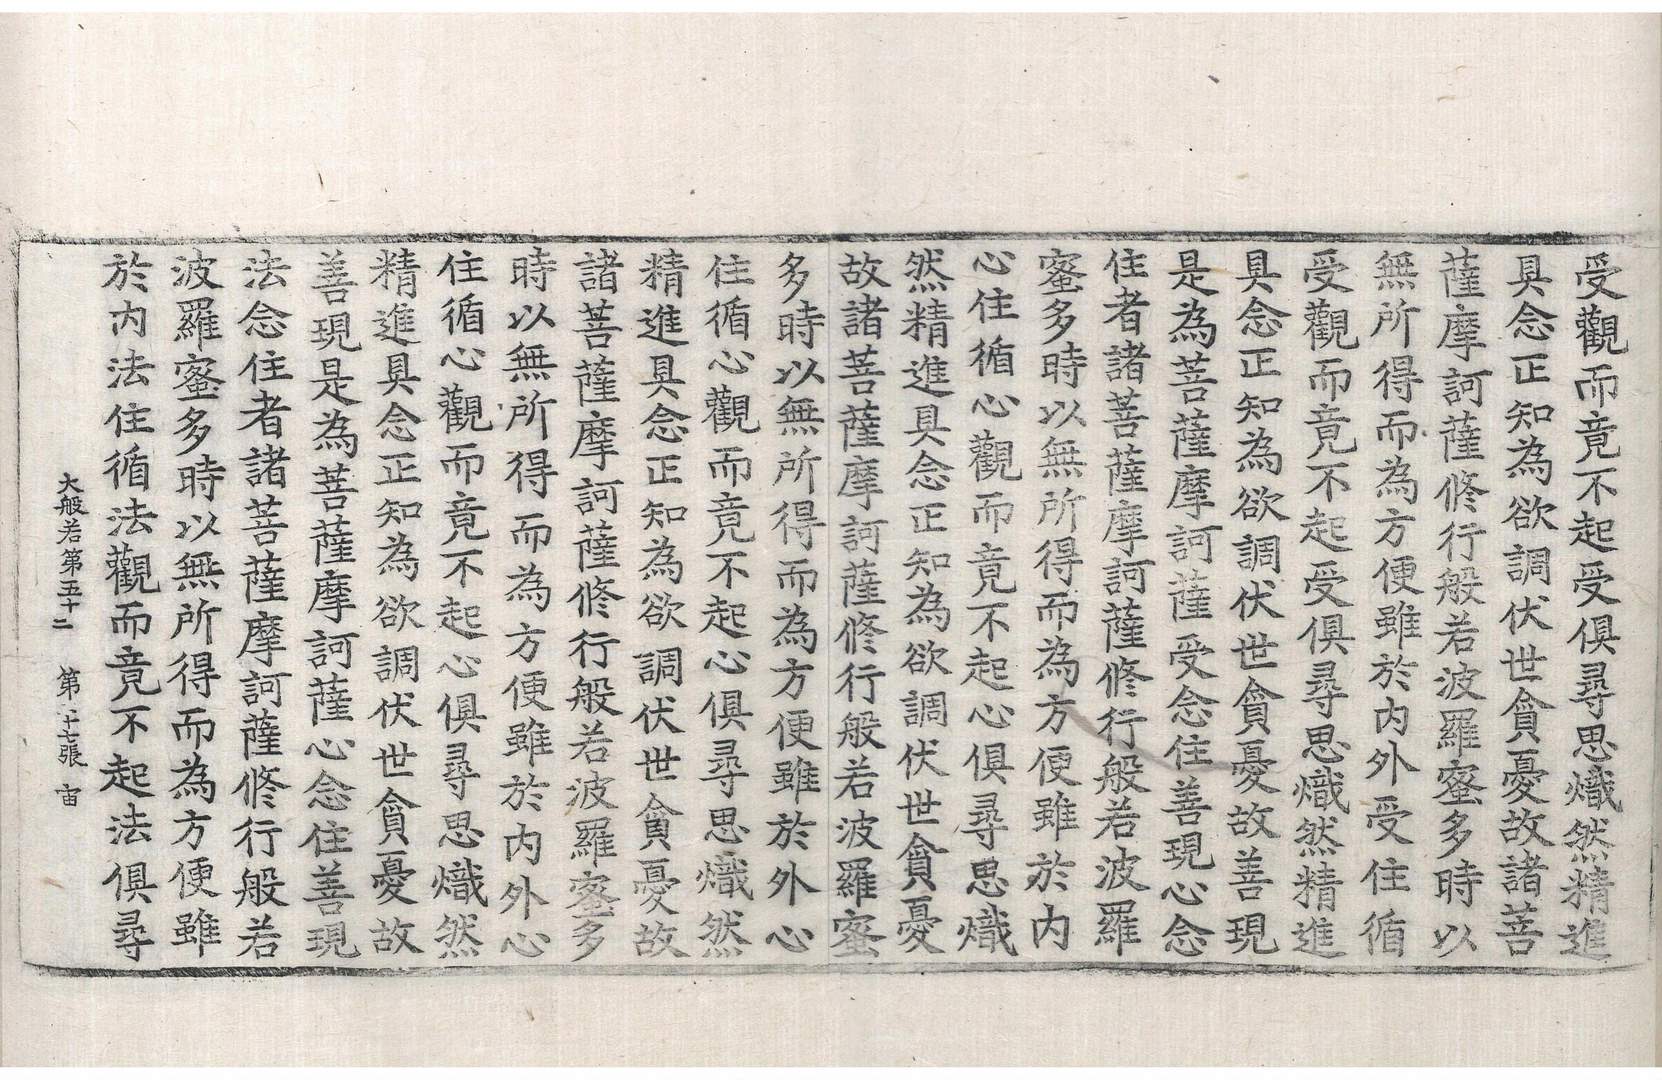 受觀而竟不起受俱尋思熾然精進
具念正知為欲調伏世貪憂故諸菩
薩摩訶薩修行般若波羅蜜多時以
無所得而為方便雖於內外受住循
受觀而竟不起受俱尋思熾然精進
具念正知為欲調伏世貪憂故善現
是為菩薩摩訶薩受念住善現心念
住者諸菩薩摩訶薩修行般若波羅
蜜多時以無所得而為方便雖於內
心住循心觀而竟不起心俱尋思熾
然精進具念正知為欲調伏世貪憂
故諸菩薩摩訶薩修行般若波羅蜜
多時以無所得而為方便雖於外心
住循心觀而竟不起心俱尋思熾然
精進具念正知為欲調伏世貪憂故
諸菩薩摩訶薩修行般若波羅蜜多
時以無所得而為方便雖於內外心
住循心觀而竟不起心俱尋思熾然
精進具念正知為欲調伏世貪憂故
善現是為菩薩摩訶薩心念住善現
法念住者諸菩薩摩訶薩修行般若
波羅蜜多時以無所得而為方便雖
於內法住循法觀而竟不起法俱尋
大般若第五十二 第二十七張 宙